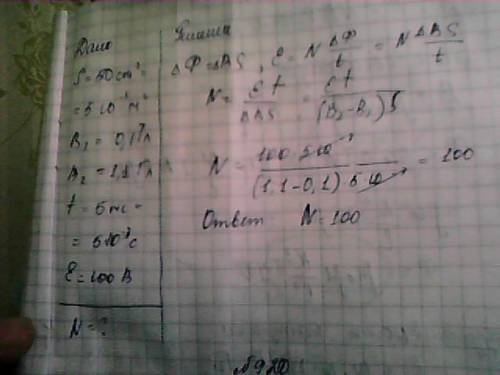 Дано
S = 50 cm² =
= 5·10⁻³ м²
B₁ = 0,1 Тл
B₂ = 1,1 Тл
t = 5 мс =
= 5·10⁻³ с
ε = 100 В
N = ?
Решение
ΔФ = ΔBS, ε = N ΔФ/t = N ΔBS/t
N = εt/ΔBS = εt/(B₂-B₁)S
N = 100·5·10⁻³/(1,1-0,1)·5·10⁻³ = 100
Ответ N=100
№920